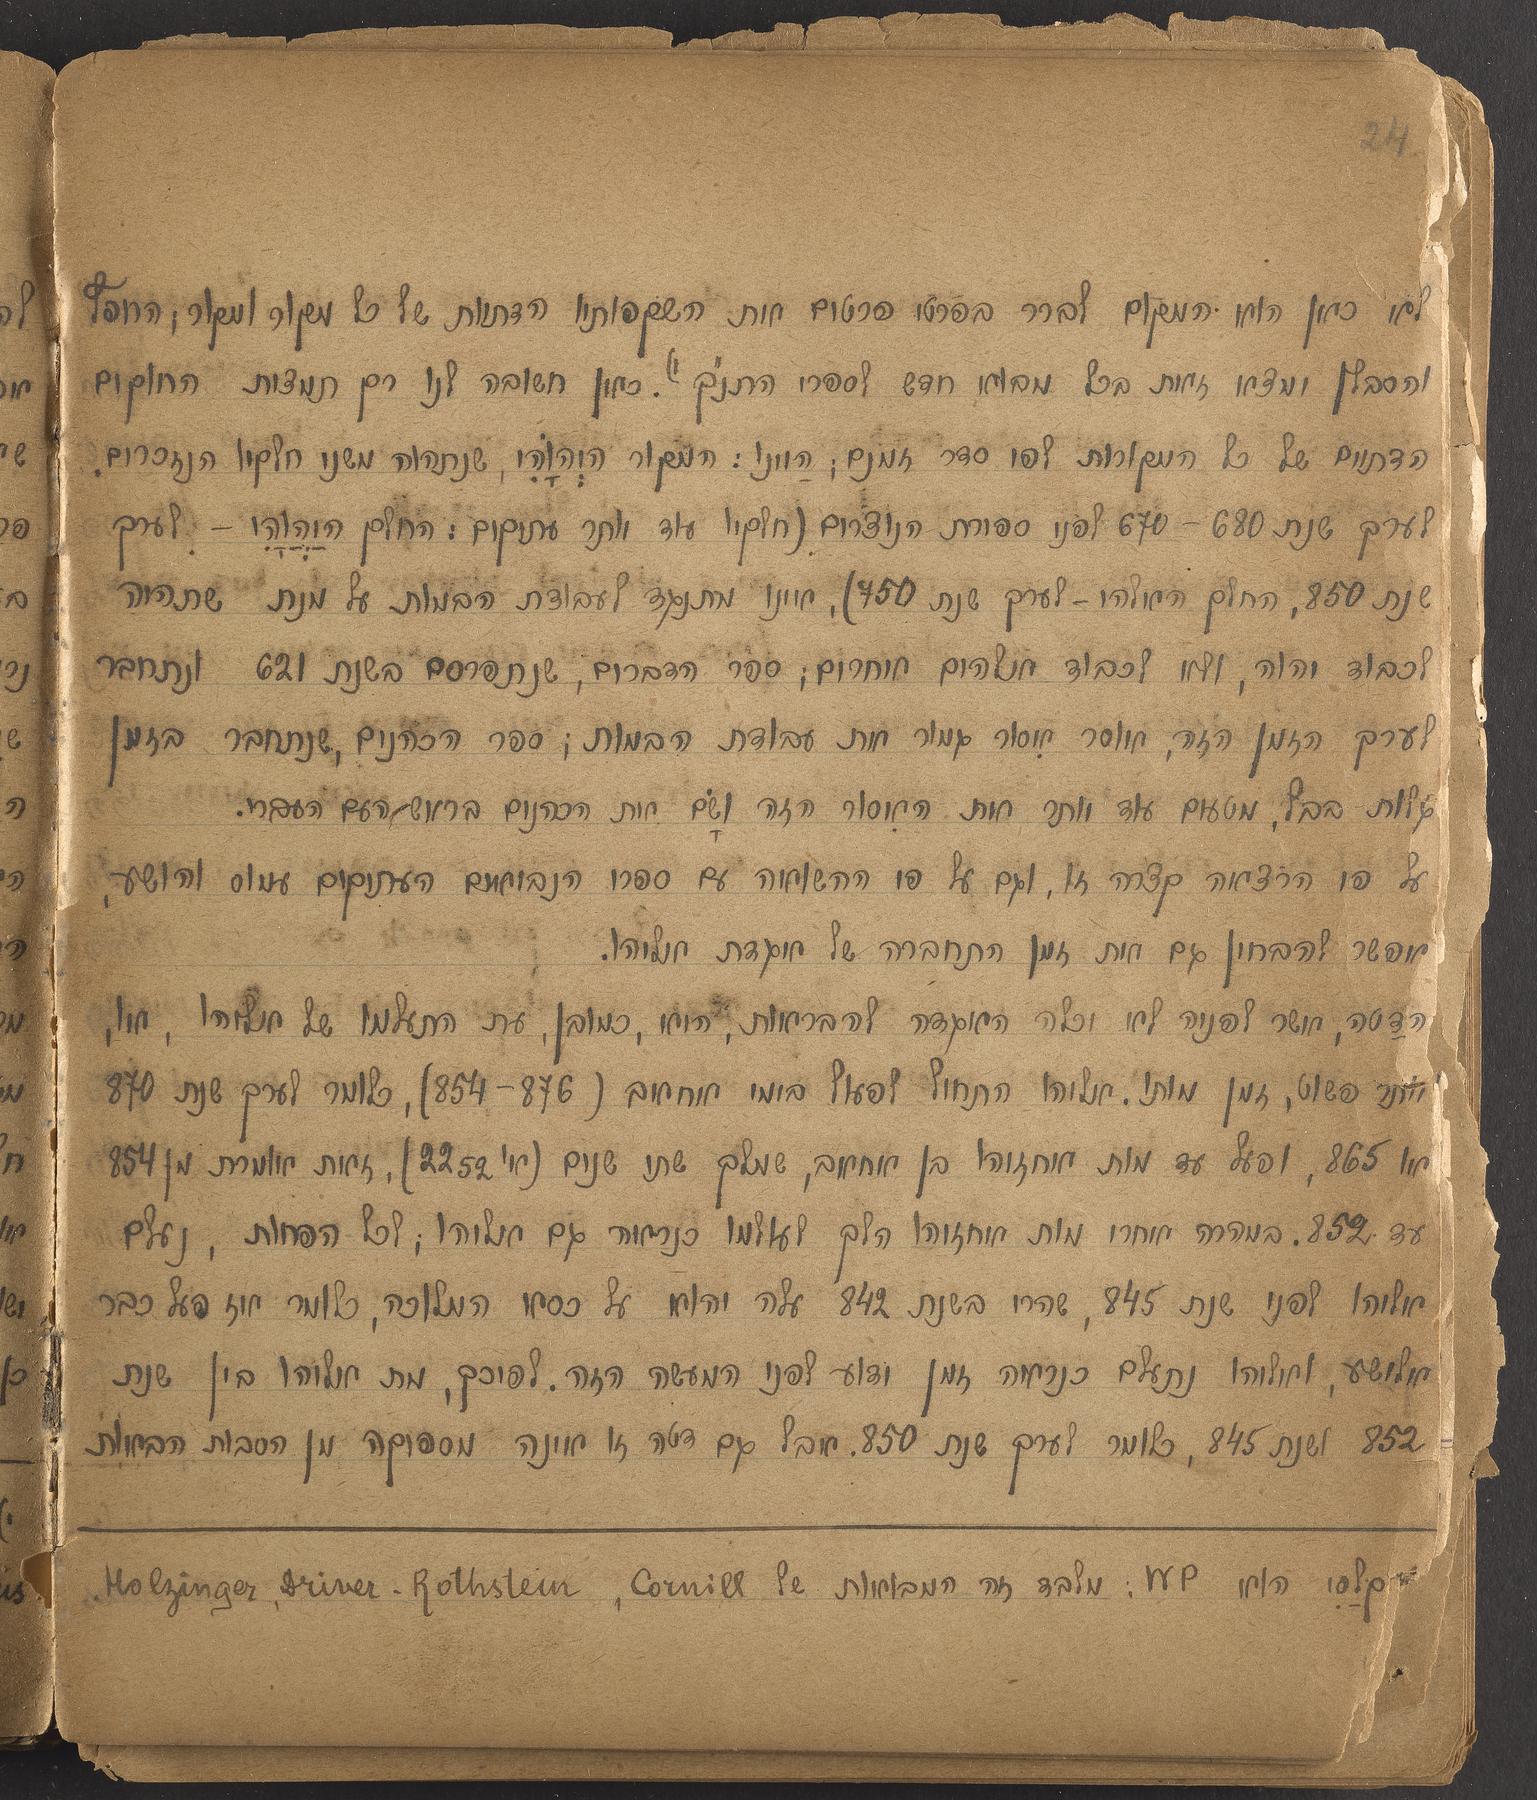 24
לא כאן הוא המקום לברר בפרטי פרטים את השקפותיו הדתיות של כל מקור ומקור; החפץ
והסבלן ימצא זאת בכל מבוא חדש לספרי התנ״ך ¹). כאן חשובה לנו רק תמצית החוקים
הדתיים של כל המקורות לפי סדר זמנם; הַיינו: המקור היְהוָֹהִי, שנתהוה משני חלקיו הנזכרים,
לערך שנת 680 – 670 לפני ספירת הנוצרים (חלקיו עוד יותר עתיקים: החלק היַהֲוָהִי – לערך
שנת 850, החלק האלהי – לערך שנת 750), איננו מתנגד לעבודת הבמות על מנת שתהיה
לכבוד יהוה, ולא לכבוד אלהים אחרים; ספר הדברים, שנתפרסם בשנת 621 ונתחבר
לערך הזמן הזה, אוסר אִסור גמור את עבודת הבמות; ספר הכהנים, שנתחבר בזמן
גלות בבל, מטעים עוד יותר את האִסור הזה ושָׂם את הכהנים בראש העם העברי.
על פי הרצאה קצרה זו, וגם על פי ההשואה עם ספרי הנביאים העתיקים עמוס והושע,
אפשר להבחין גם את זמן התחברה של אגדת אליהו.
הדַטה, אשר לפניה לא יכלה האגדה להבראות, היא, כמובן, עת התעלמו של אליהו, או,
יותר פשוט, זמן מותו. אליהו התחיל לפעול בימי אחאב (876 – 854), כלומר לערך שנת 870
או 865, ופעל עד מות אחזיהו בן אחאב, שמלך שתי שנים (א׳ 22 52), זאת אומרת מן 854
עד 852. במהרה אחרי מות אחזיהו הלך לעולמו כנראה גם אליהו; לכל הפחות, נעלם
אליהו לפני שנת 845, שהרי בשנת 842 עלה יהוא על כסא המלוכה, כלומר אז פעל כבר
אלישע, ואליהו נתעלם כנראה זמן ידוע לפני המעשה הזה. לפיכך, מת אליהו בין שנת
852 ושנת 845, כלומר לערך שנת 850. אבל גם דטה זו איננה מספיקה מן הסבות הבאות
קלַסי הוא WP; מלבד זה המבואות של Cornill, Holzinger, Driver - Rothstein.